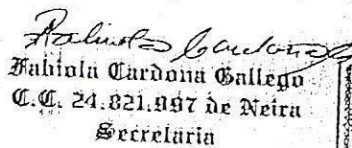 Fabiola Cardona G
Fabiola Cardona Gallego
C.C. 24.821.997 de Neira
Secretaria